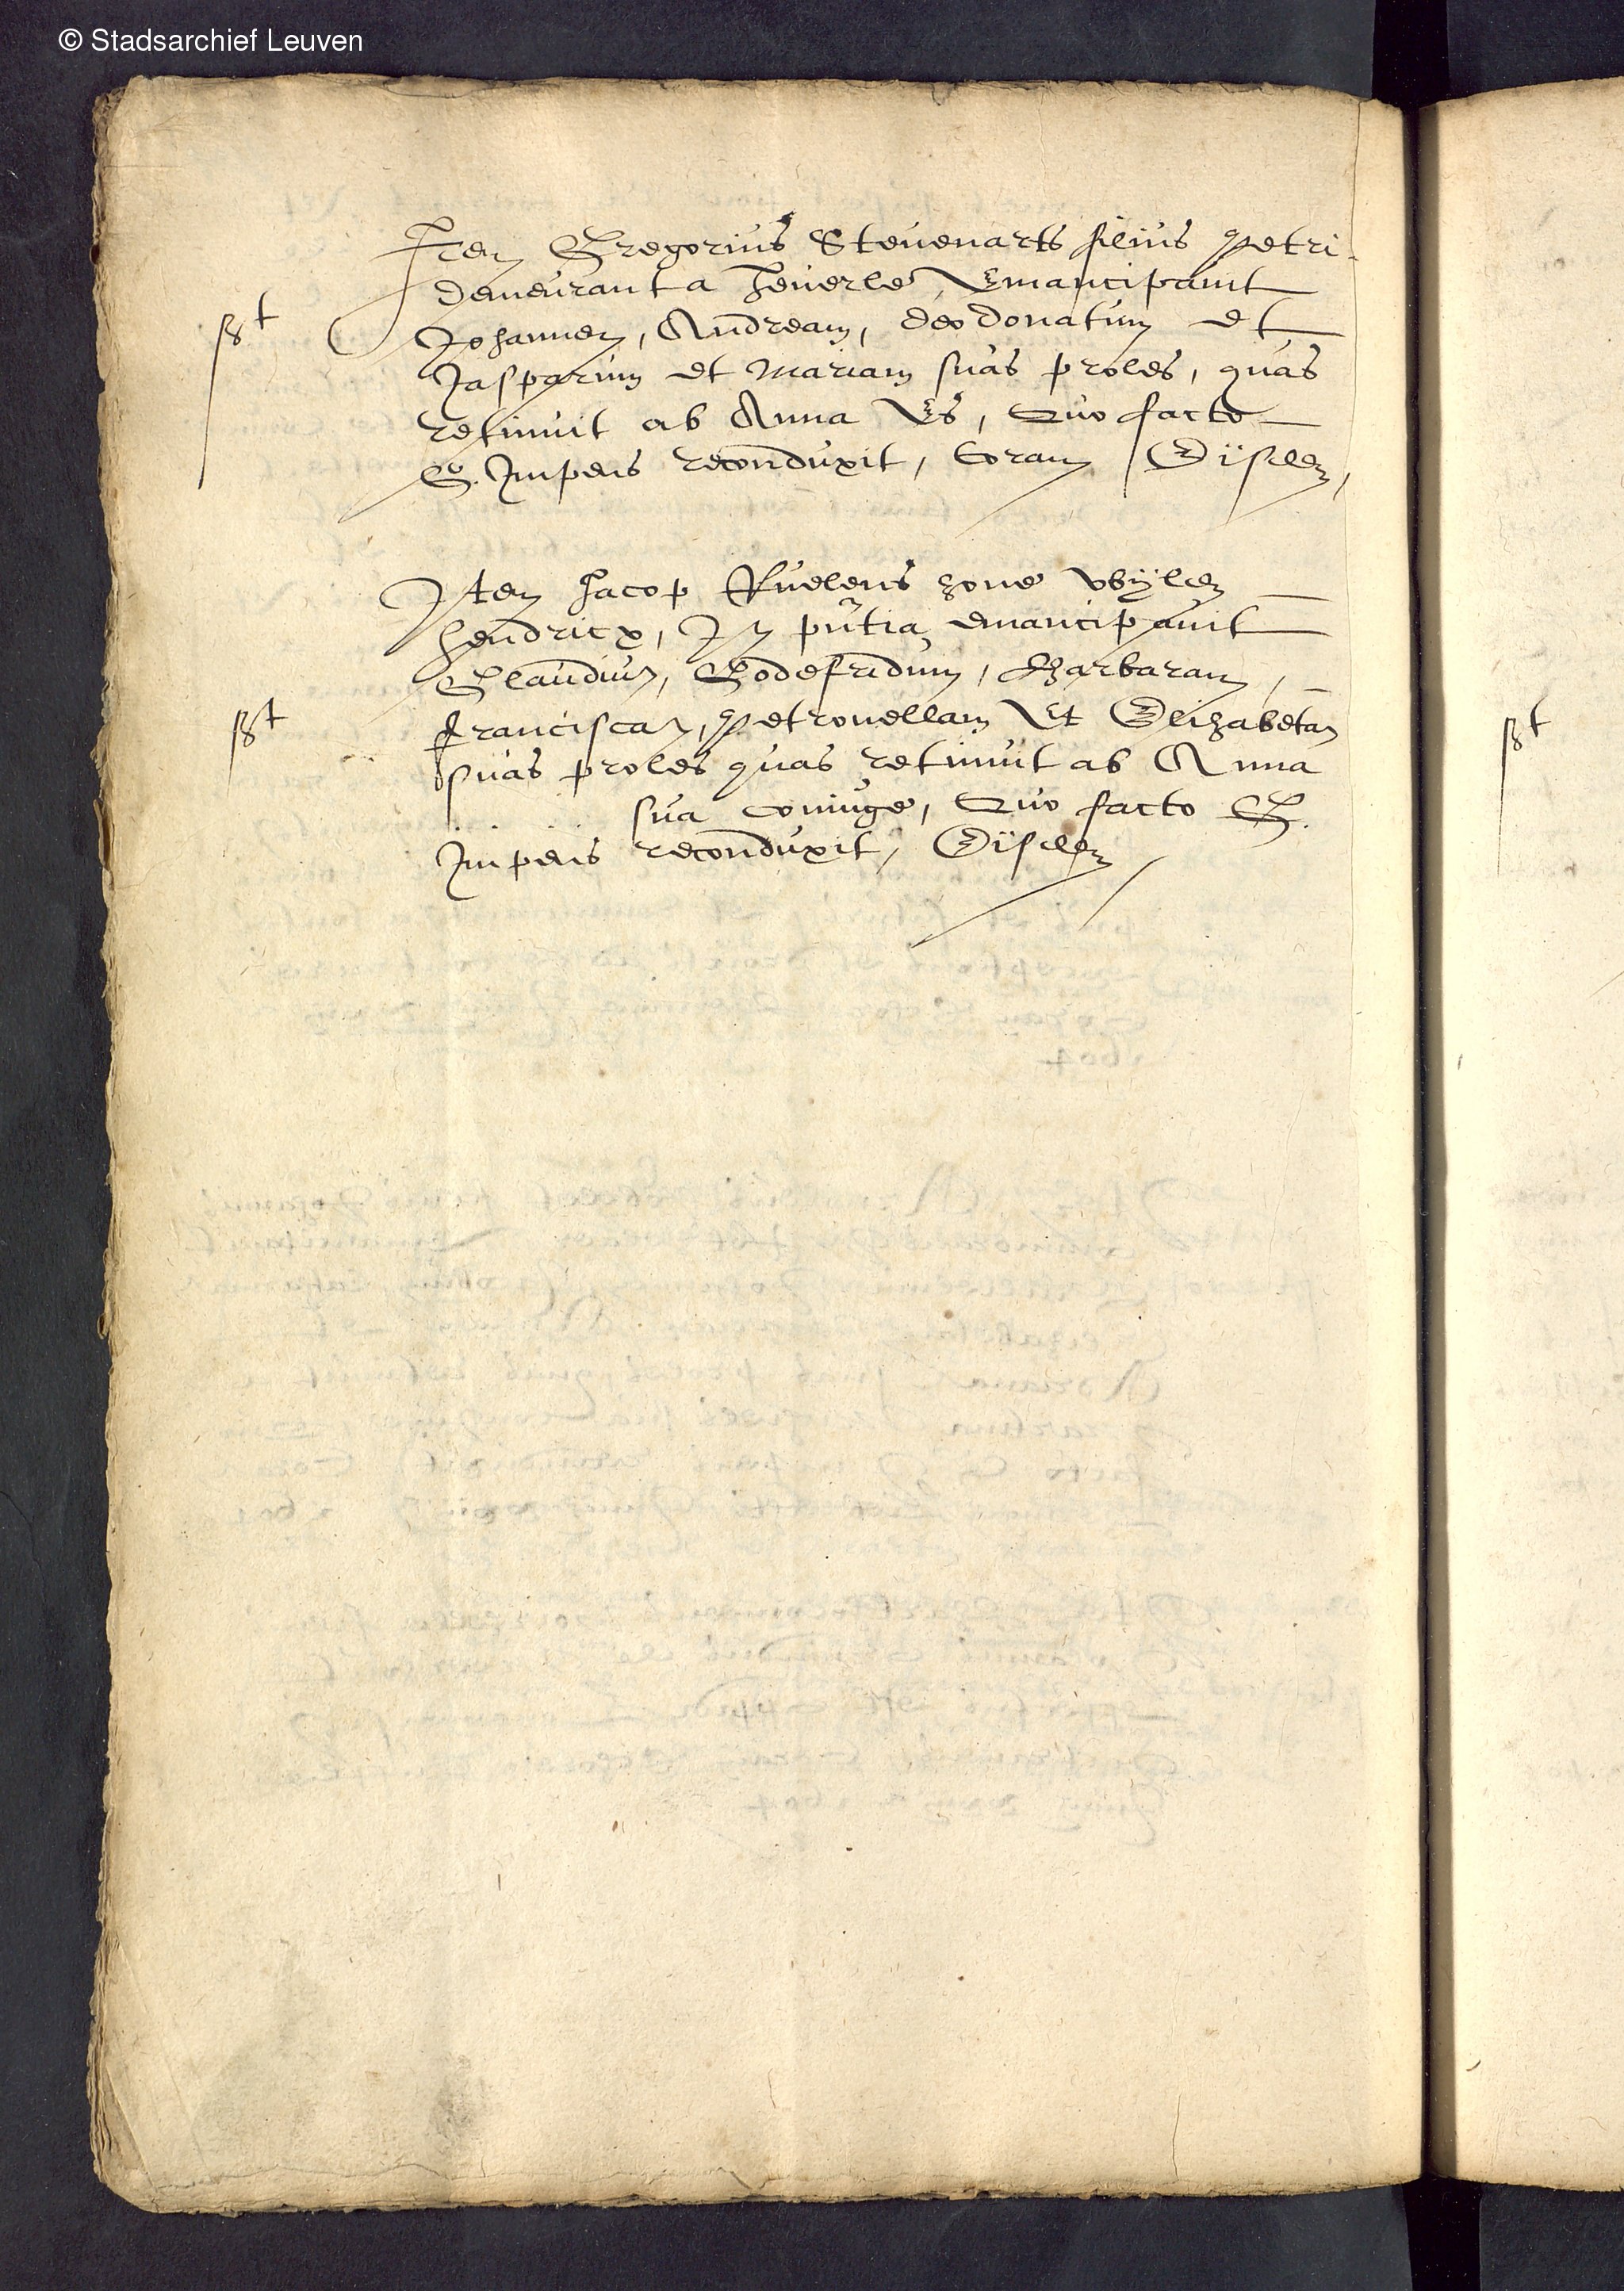 © Stadsarchief Leuven
Item Gregorius Stevenarts filius Petri
demeurant a heverle, Emancipavit
st
Johannem, Andream, deodonatum et
Jasparum et Mariam suas proles, quas
retinuit ab Anna Es, Quo facto
G. Impens reconduxit, Coram
Item Jacop Ruelens zone wylen
hendricx, In pntia emancipavit
Glaudium, Godefridum, Barbaram,
st
franciscam, Petronellam Et Elizabetam
suas proles quas retinuit ab Anna
sua coniuge, Quo facto G.
Impens reconduxit,
st